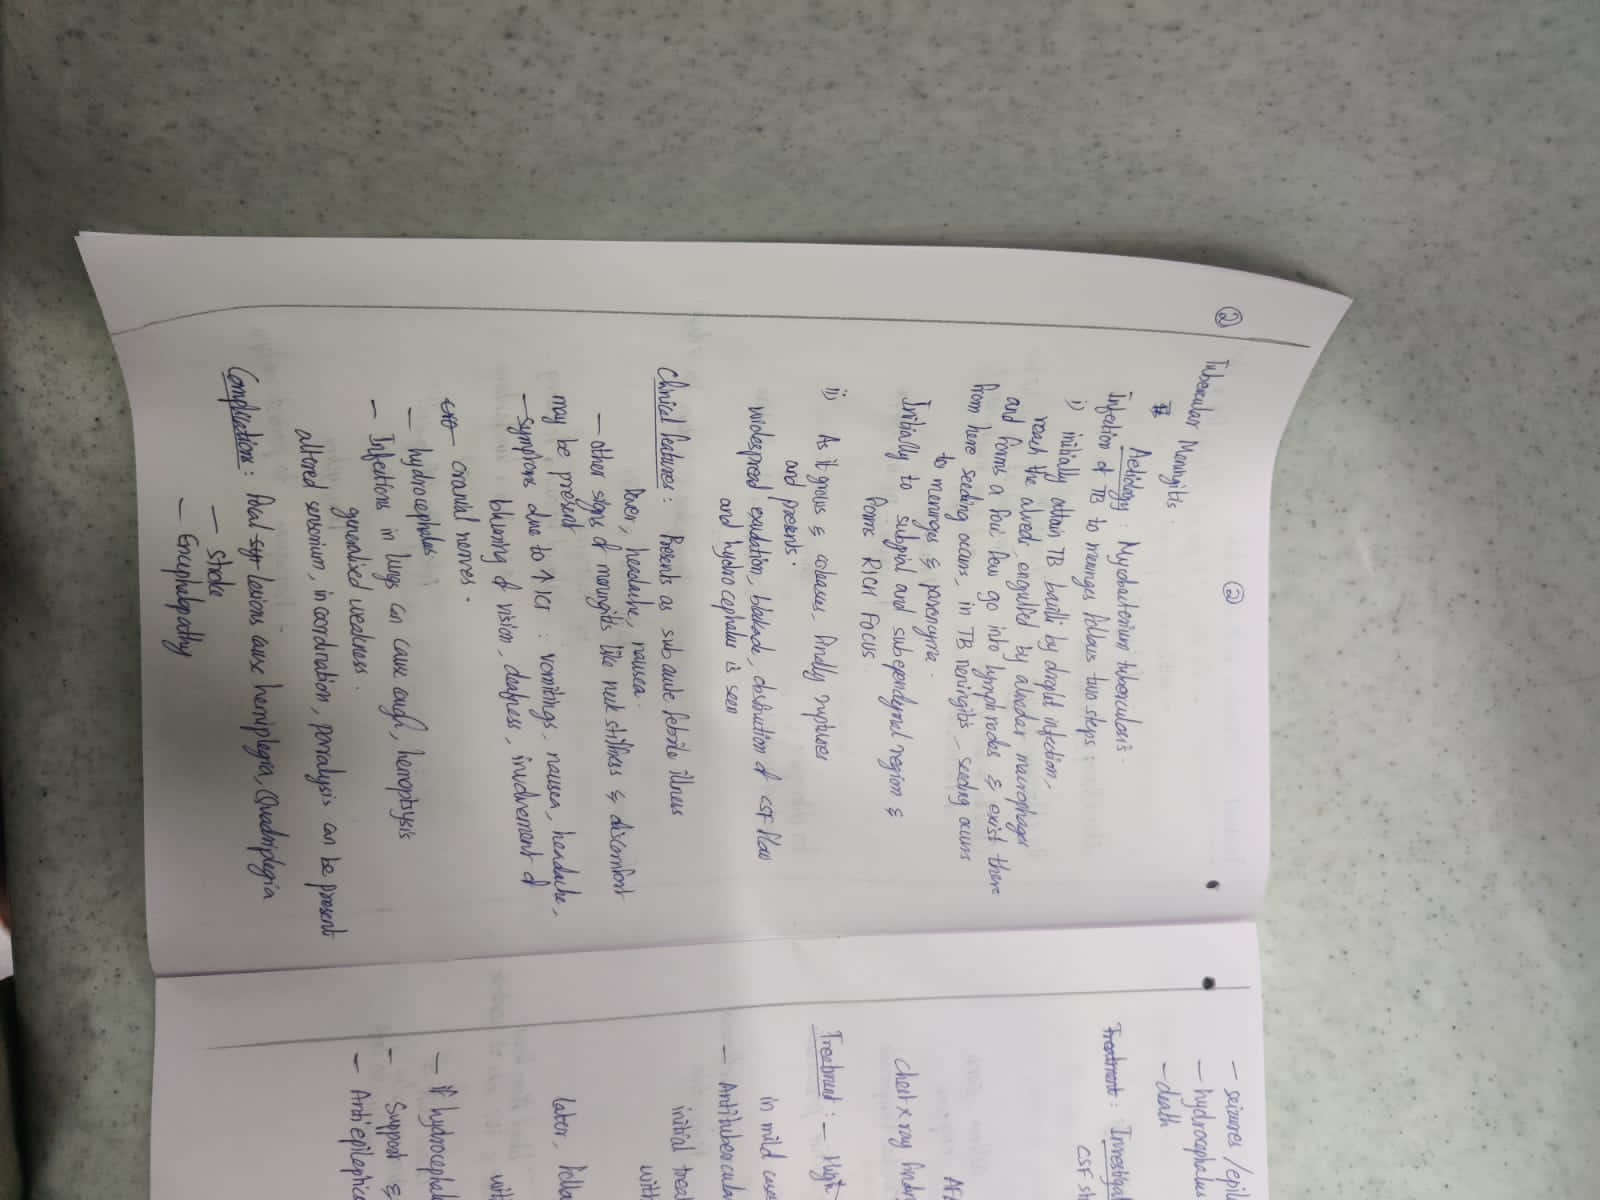 ②
②
Tubercular Meningitis.
Aetiology : Mycobacterium tuberculosis.
Infection of TB to meninges follows two steps :
i) initially attain TB bacilli by droplet infection,
reach the alveoli, engulfed by alveolar macrophages
and forms a foci. few go into lymph nodes & exist there
from here seeding occurs, in TB meningitis, seeding occurs
to meninges & parenchyma.
Initially to subpial and subependymal region &
forms RICH FOCUS.
ii) As it grows & caseases, finally ruptures
and presents.
widespread exudation, blockade, obstruction of CSF flow
and hydrocephalus is seen
Clinical features : Presents as sub acute febrile illness
fever, headache, nausea.
– other signs of meningitis like neck stiffness & discomfort
may be present
– symptoms due to ↑ ICT : vomitings, nausea, headache,
blurring of vision, deafness, involvement of
cranial nerves.
– hydrocephalus
– Infections in lungs can cause cough, hemoptysis
generalised weakness.
altered sensorium, in coordination, paralysis can be present
Complications : Focal lesions cause hemiplegia, Quadriplegia
– stroke
– Encephalopathy
– seizures / epil
– hydrocephalus
– death
Treatment : Investigat
CSF st
AF
chest x ray findin
Treatment : – High
in mild case
– Antitubercula
initial trea
with
later, follo
with
– if hydrocephal
– Support &
– Anti epileptics